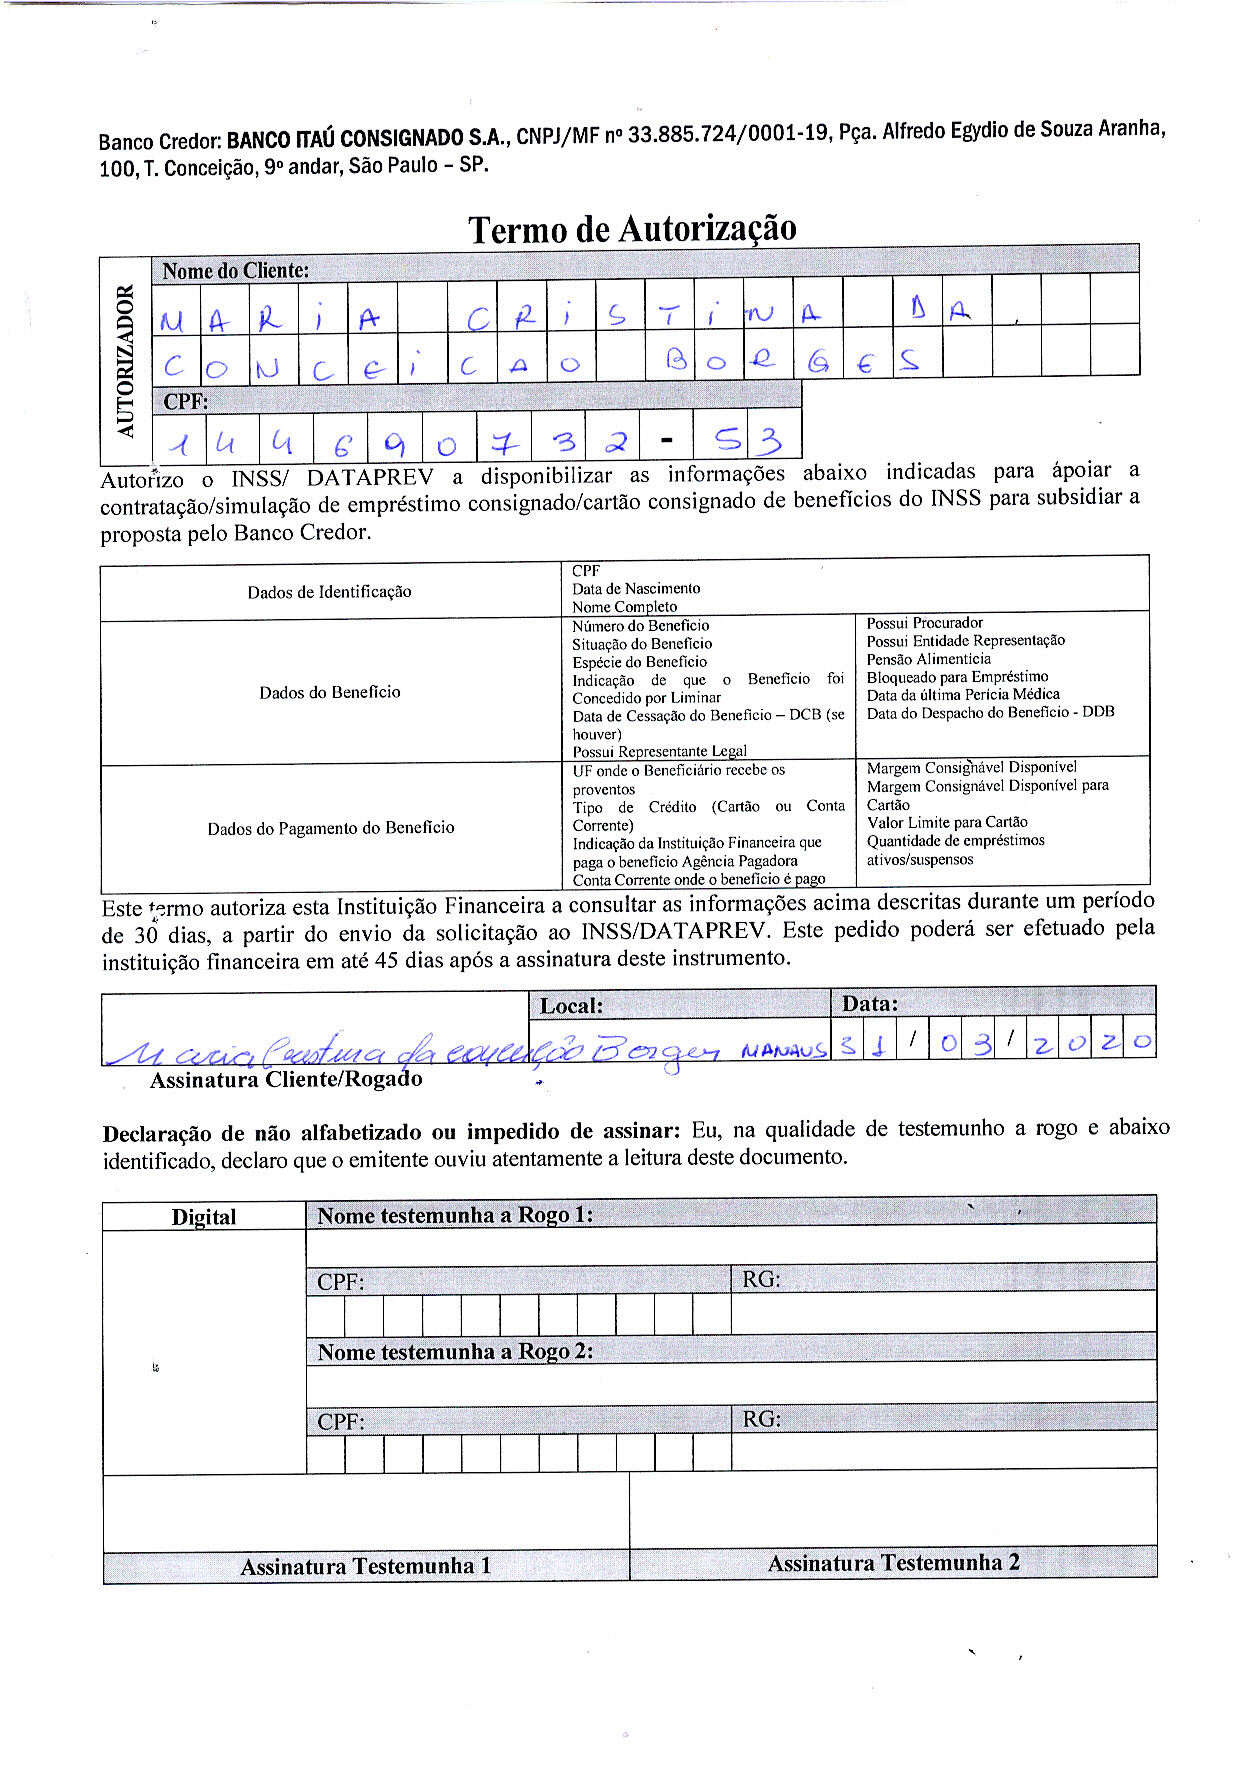 Banco Credor: BANCO ITAÚ CONSIGNADO S.A., CNPJ/MF nº 33.885.724/0001-19, Pça. Alfredo Egydio de Souza Aranha,
100, T. Conceição, 9º andar, São Paulo – SP.
Termo de Autorização
AUTORIZADOR
Nome do Cliente:
MARIA CRISTINA DA
CONCEICAO BORGES
CPF:
144690732-53
Autorizo o INSS/ DATAPREV a disponibilizar as informações abaixo indicadas para ápoiar a
contratação/simulação de empréstimo consignado/cartão consignado de benefícios do INSS para subsidiar a
proposta pelo Banco Credor.
Dados de Identificação
CPF
Data de Nascimento
Nome Completo
Dados do Benefício
Número do Benefício
Situação do Benefício
Espécie do Benefício
Indicação de que o Benefício foi
Concedido por Liminar
Data de Cessação do Benefício – DCB (se
houver)
Possui Representante Legal
Possui Procurador
Possui Entidade Representação
Pensão Alimentícia
Bloqueado para Empréstimo
Data da última Perícia Médica
Data do Despacho do Benefício - DDB
Dados do Pagamento do Benefício
UF onde o Beneficiário recebe os
proventos
Tipo de Crédito (Cartão ou Conta
Corrente)
Indicação da Instituição Financeira que
paga o benefício Agência Pagadora
Conta Corrente onde o benefício é pago
Margem Consignável Disponível
Margem Consignável Disponível para
Cartão
Valor Limite para Cartão
Quantidade de empréstimos
ativos/suspensos
Este termo autoriza esta Instituição Financeira a consultar as informações acima descritas durante um período
de 30 dias, a partir do envio da solicitação ao INSS/DATAPREV. Este pedido poderá ser efetuado pela
instituição financeira em até 45 dias após a assinatura deste instrumento.
Local:
Data:
Maria Cristina da Conceição Borges MANAUS 31/03/2020
Assinatura Cliente/Rogado
Declaração de não alfabetizado ou impedido de assinar: Eu, na qualidade de testemunho a rogo e abaixo
identificado, declaro que o emitente ouviu atentamente a leitura deste documento.
Digital
Nome testemunha a Rogo 1:
CPF:
RG:
Nome testemunha a Rogo 2:
CPF:
RG:
Assinatura Testemunha 1
Assinatura Testemunha 2